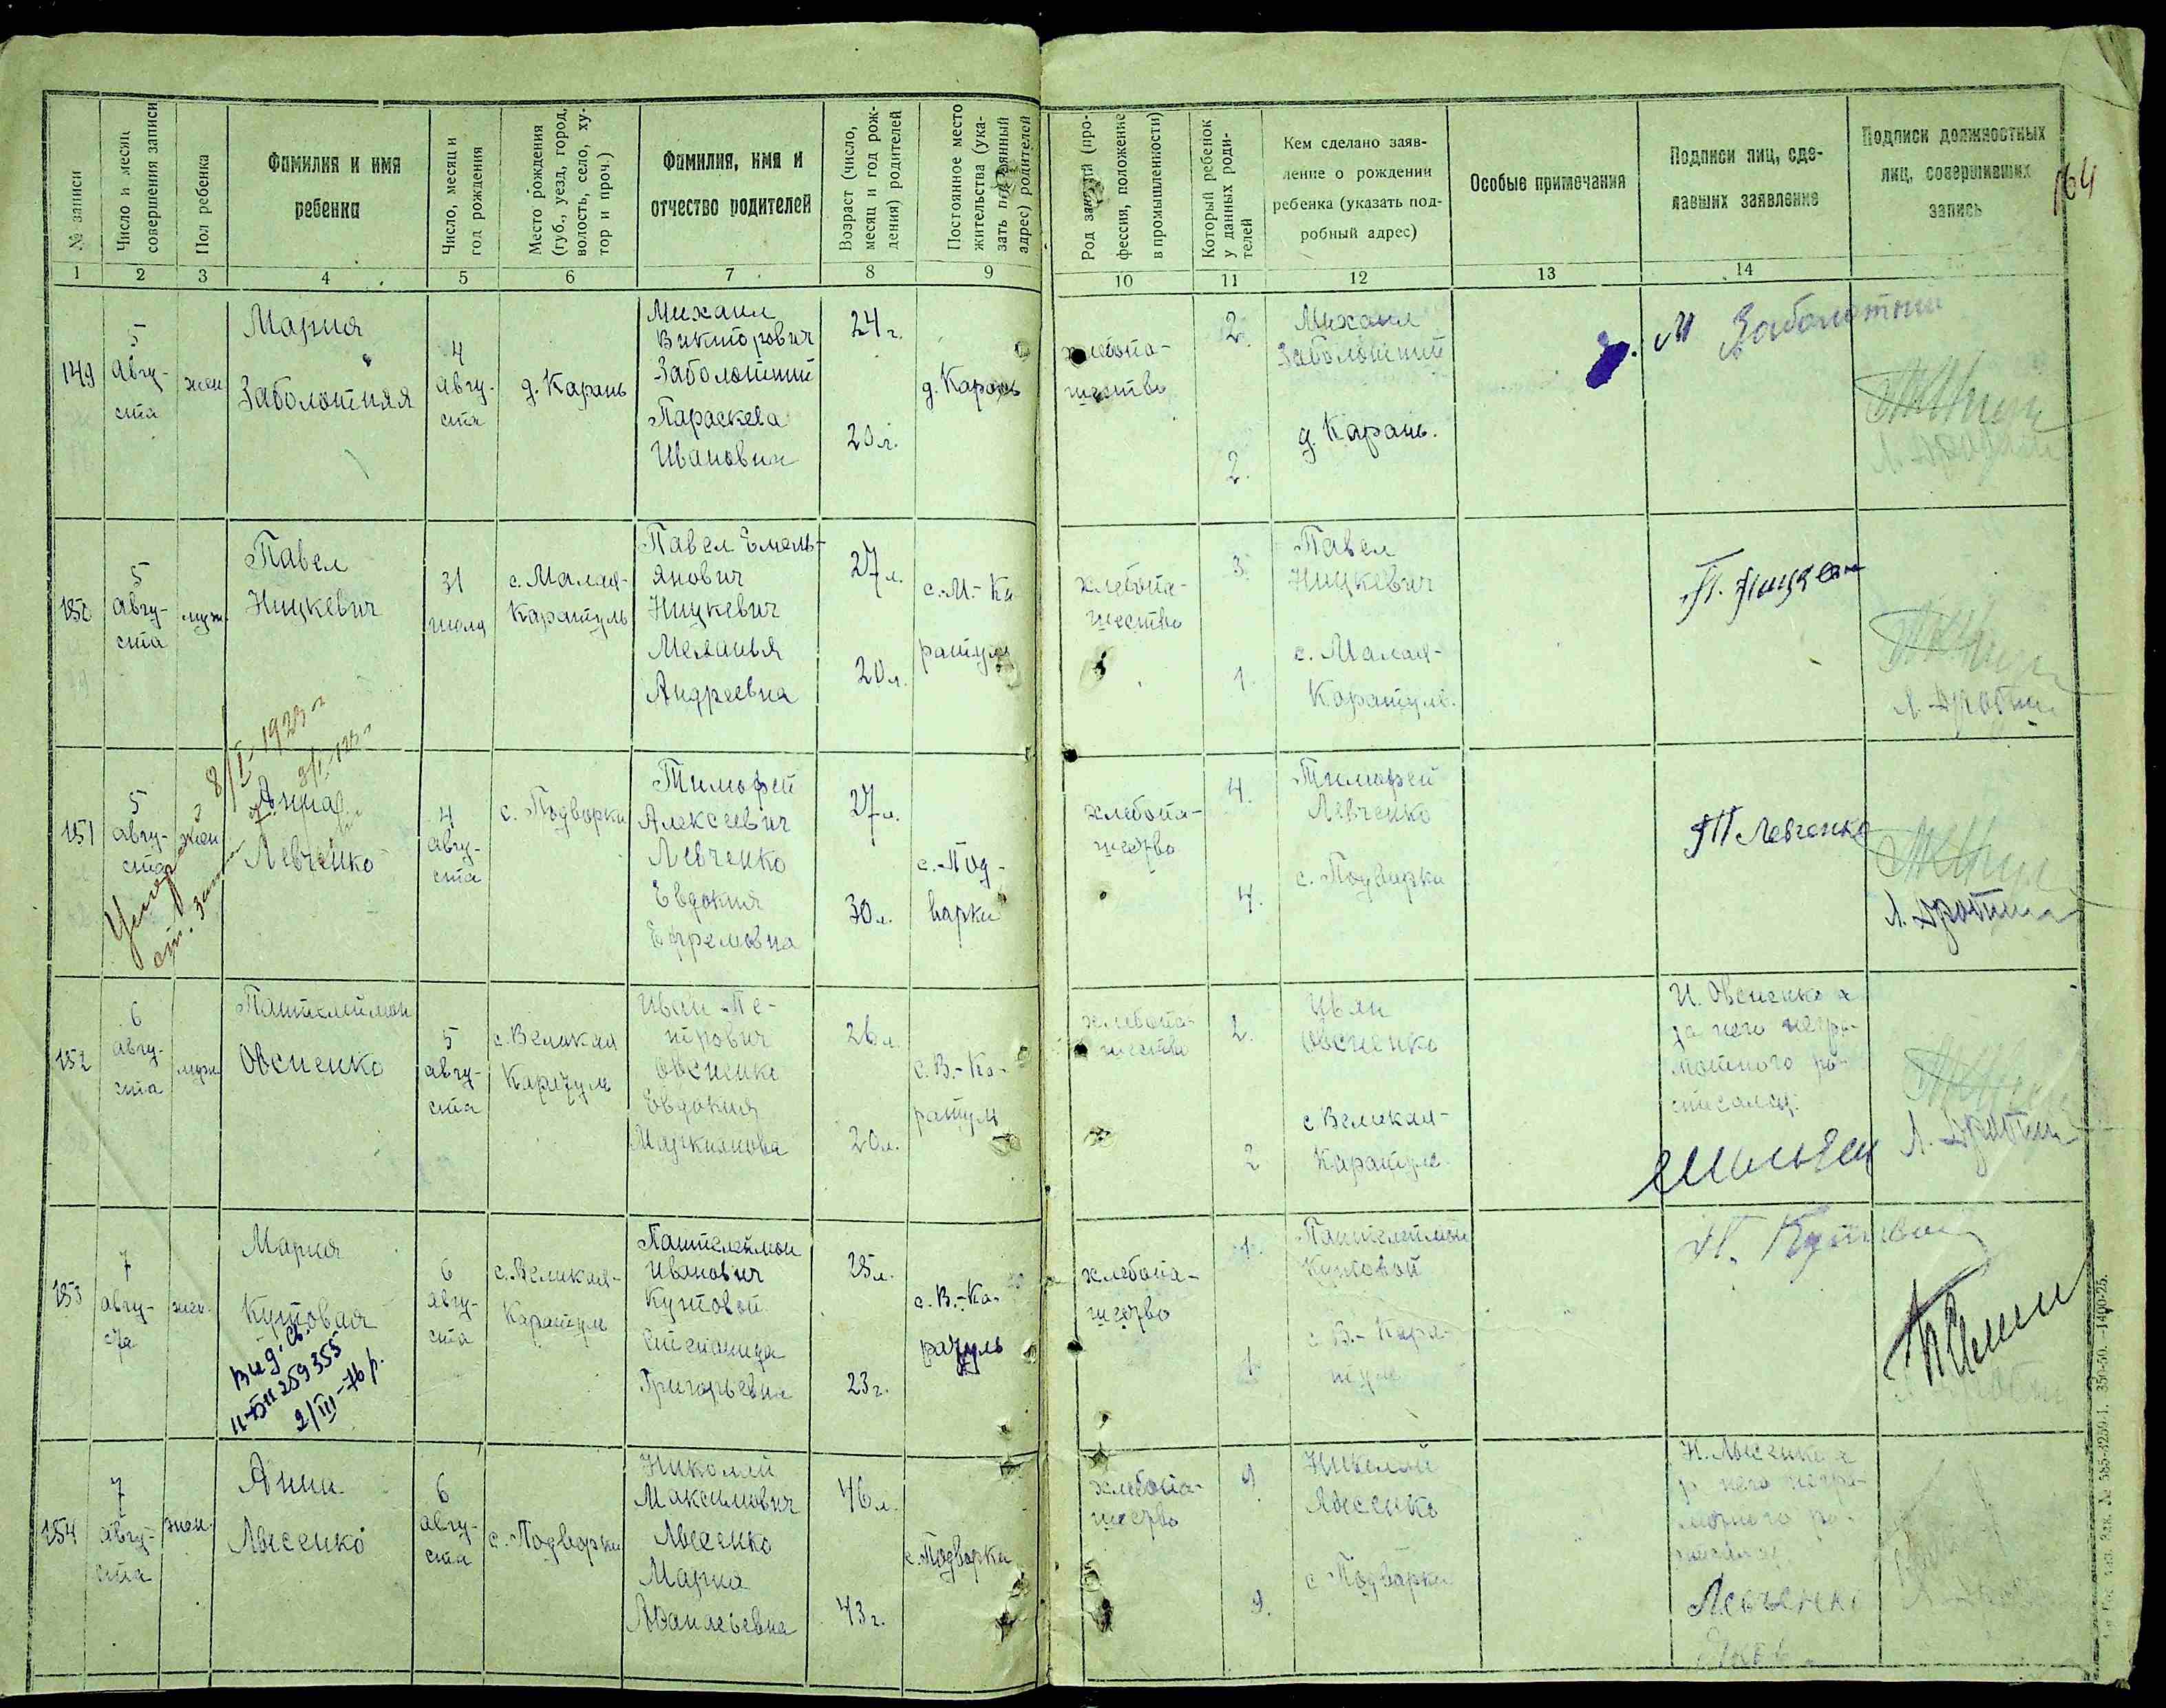 № записи
Число и месяц
совершения записи
Пол ребенка
Фамилия и имя
ребенка
Число, месяц и
год рождения
Место рождения
(губ., уезд, город,
волость, село, ху-
тор и проч.)
Фамилия, имя и
отчество родителей
Возраст (число,
месяц и год рож-
дения) родителей
Постоянное место
жительства (ука-
зать
адрес) родителей
Род занятий (про-
фессия, положение
в промышленности)
Который ребенок
у данных роди-
телей
Кем сделано заяв-
ление о рождении
ребенка (указать под-
робный адрес)
Особые примечания
Подписи лиц, сде-
лавших заявление
Подписи должностных
лиц, совершивших
запись
164
1 2 3 4 5 6 7 8 9 10 11 12 13 14
149
5
авгу-
ста
жен
Мария
Заболотная
4
авгу-
ста
д. Карань
Михаил
Викторович
Заболотний
Параскева
Ивановна
24 г.
20 л.
д. Карань
хлебопа-
шество
2.
2.
Михаил
Заболотний
д. Карань.
М Заболотний
150
5
авгу-
ста
муж.
Павел
Ницкевич
31
июля
с. Малая-
Каратуль
Павел Емель-
янович
Ницкевич
Меланья
Андреевна
27 л.
20 л.
с. М.-Ка
ратуль
хлебопа-
шество
3.
1.
Павел
Ницкевич
с. Малая-
Каратуль.
151
5
авгу-
ста
жен
Анна
Левченко
8/I-1923 г
Умер
4
авгу-
ста
с. Подворки
Тимофей
Алексеевич
Левченко
Евдокия
Ефремовна
27 л.
30 л.
с. Под-
варки
хлебопа-
шество
4.
4.
Тимофей
Левченко
с. Подварки
Т Левченко
152
6
авгу-
ста
муж
Пантелеймон
Овсиенко
5
авгу-
ста
с. Великая
Каратуль
Иван Пе-
трович
Овсиенко
Евдокия
26 л.
20 л.
с. В.-Ка-
ратуль
хлебопа-
шество
2.
2
Иван
Овсиенко
с Великая-
Каратуль
И. Овсиенко а
за него негра-
мотного ра-
списался:
153
7
авгу-
ста
жен.
Мария
Кутовая
Вид. Св.
II-БП 259355
2/III-76 р.
6
авгу-
ста
с. Великая-
Каратуль
Пантелеймон
Иванович
Кутовой
Степанида
Григорьевна
25 л.
23 г.
с. В.-Ка-
ратуль
хлебопа-
шество
1.
1.
Пантелеймон
Кутовой
с В.-Кара-
туль
П. Кутовой
154
7
авгу-
ста
жен.
Анна
Лысенко
6
авгу-
ста
с. Подворки
Николай
Максимович
Лысенко
Мария
Афанасьевна
46 л.
43 г.
с. Подворки
хлебопа-
шество
9
9.
Николай
Лысенко
с Подварки
Н. Лысенко а
за него негра-
мотного ра-
Левченко